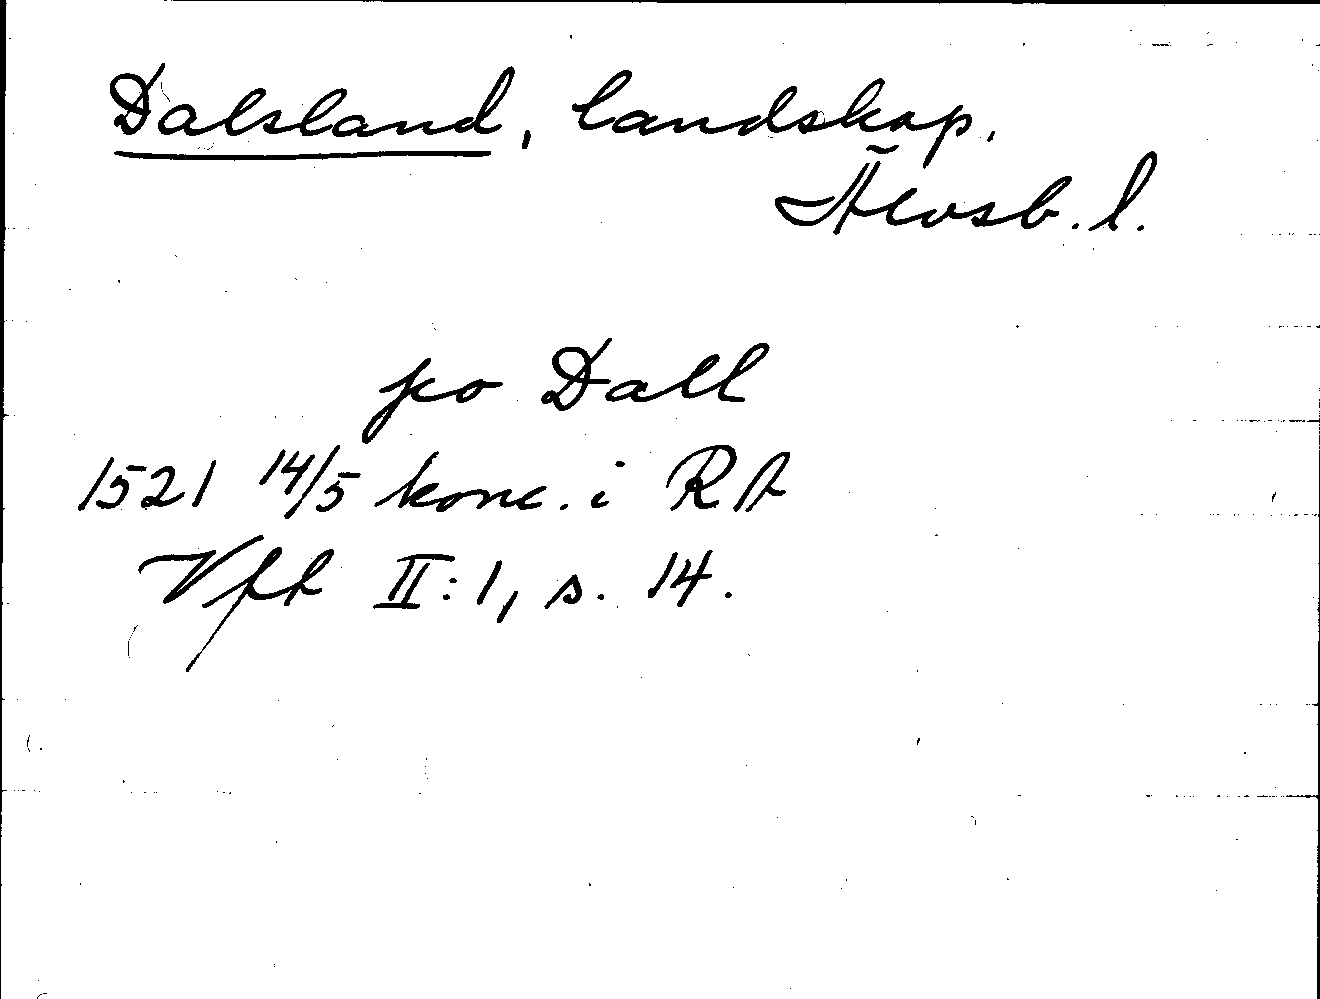 Dalsland, landskap,
Älvsb. l.
po Dall
1521 14/5 konc. i RA
Vft II:1, s. 14.